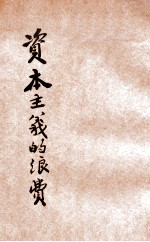 資本主義的浪費